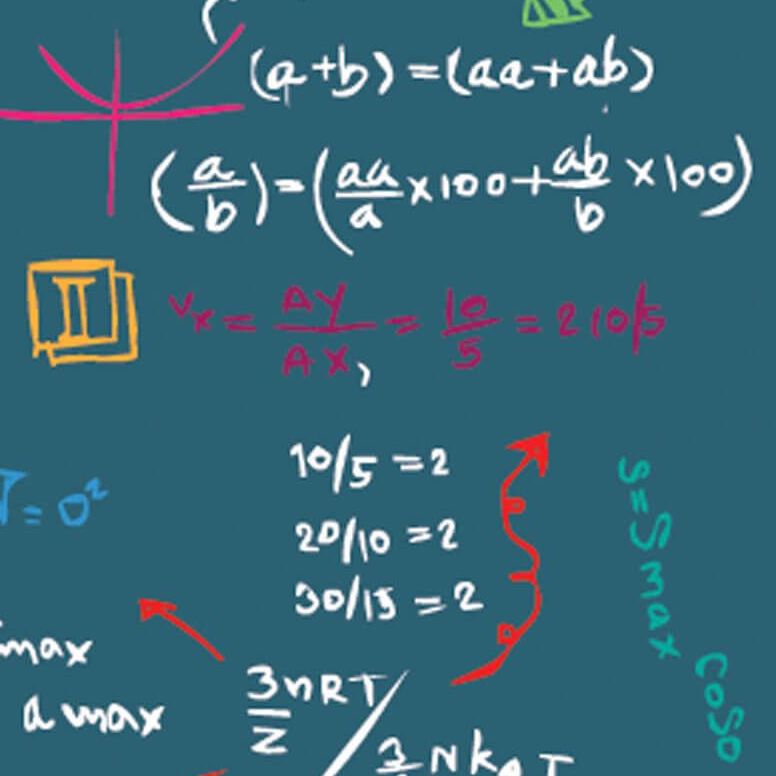 (a+b)=(aa+ab)
(a/b)=(aa/a×100+ab/b×100)
II
Vx=AY/AX,=10/5=210/5
10/5=2
=0²
20/10=2
30/15=2
S=Smax
coso
max
a max
3/2nRT/
NK
T